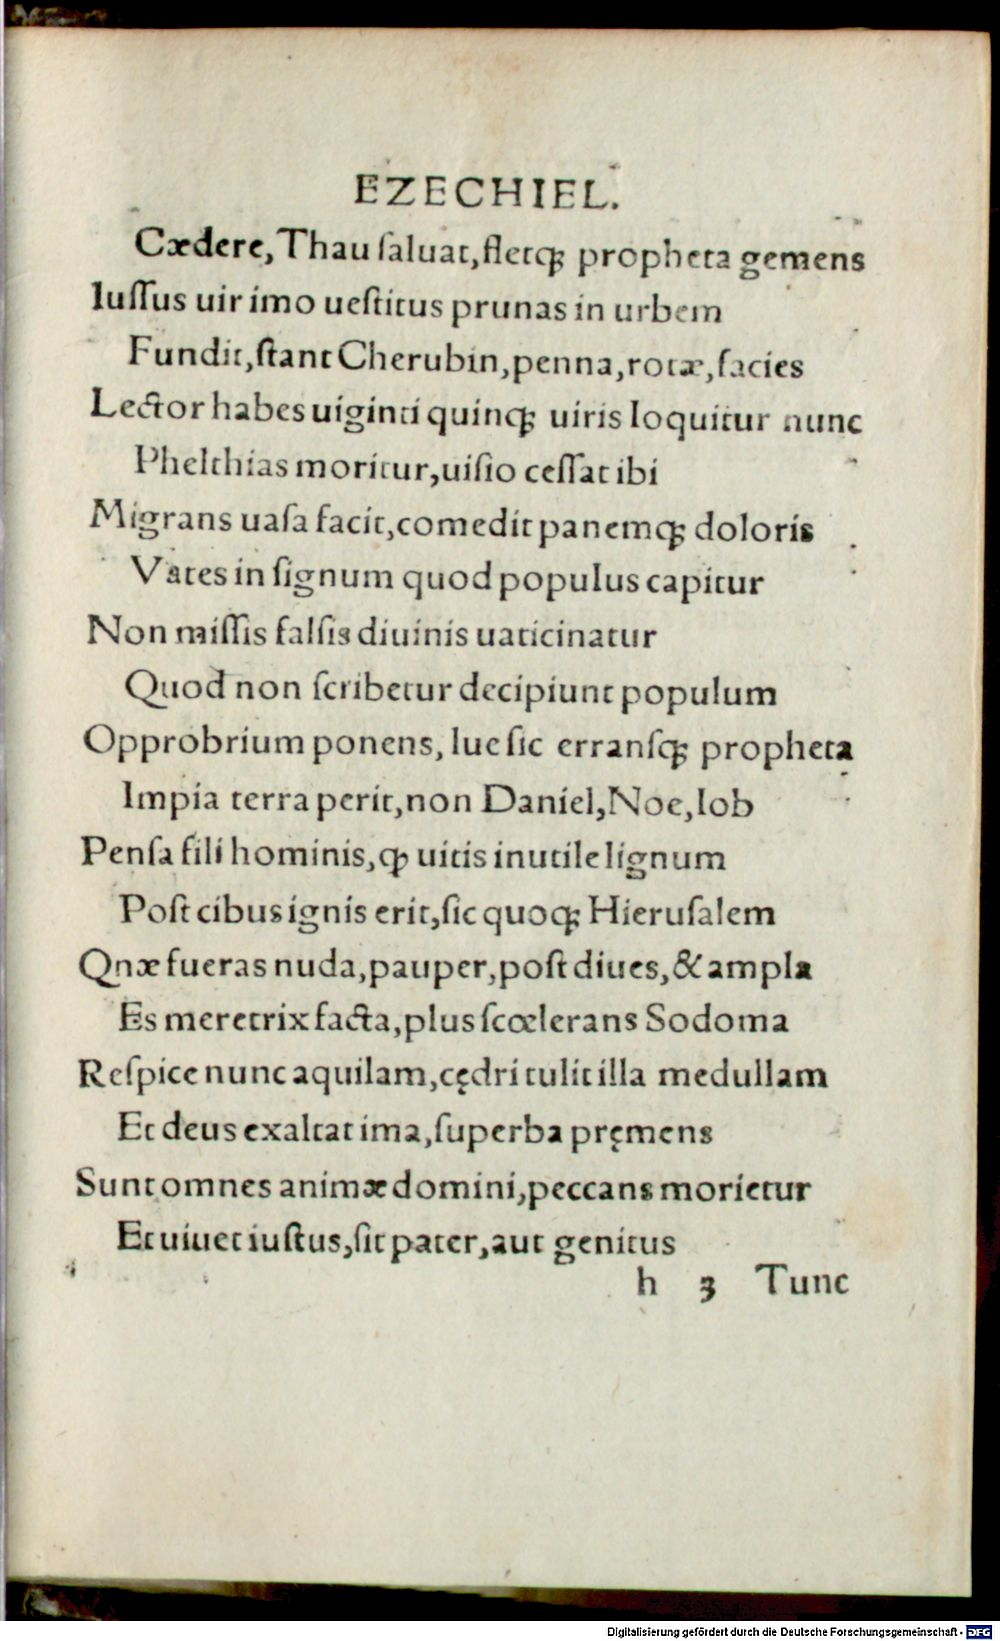 EZECHIEL.
Cædere, Thau ſaluat, fletq́; propheta gemens
Iuſſus uir imo ueſtitus prunas in urbem
Fundit, ſtant Cherubin, penna, rotæ, facies
Lector habes uiginti quinq; uiris loquitur nunc
Phelthias moritur, uiſio ceſſat ibi
Migrans uaſa facit, comedit panemq; doloris
Vates in ſignum quod populus capitur
Non miſſis falſis diuinis uaticinatur
Quod non ſcribetur decipiunt populum
Opprobrium ponens, luet ſic erranſq; propheta
Impia terra perit, non Daniel, Noe, Iob
Penſa fili hominis, ꝙ uitis inutile lignum
Poſt cibus ignis erit, ſic quoq; Hieruſalem
Qnæ fueras nuda, pauper, poſt diues, & ampla
Es meretrix facta, plus ſcœlerans Sodoma
Reſpice nunc aquilam, cędri tulit illa medullam
Et deus exaltat ima, ſuperba pręmens
Sunt omnes animæ domini, peccans morietur
Et uiuet iuſtus, ſit pater, aut genitus
h 3 Tunc
Digitalisierung gefördert durch die Deutsche Forschungsgemeinschaft - DFG